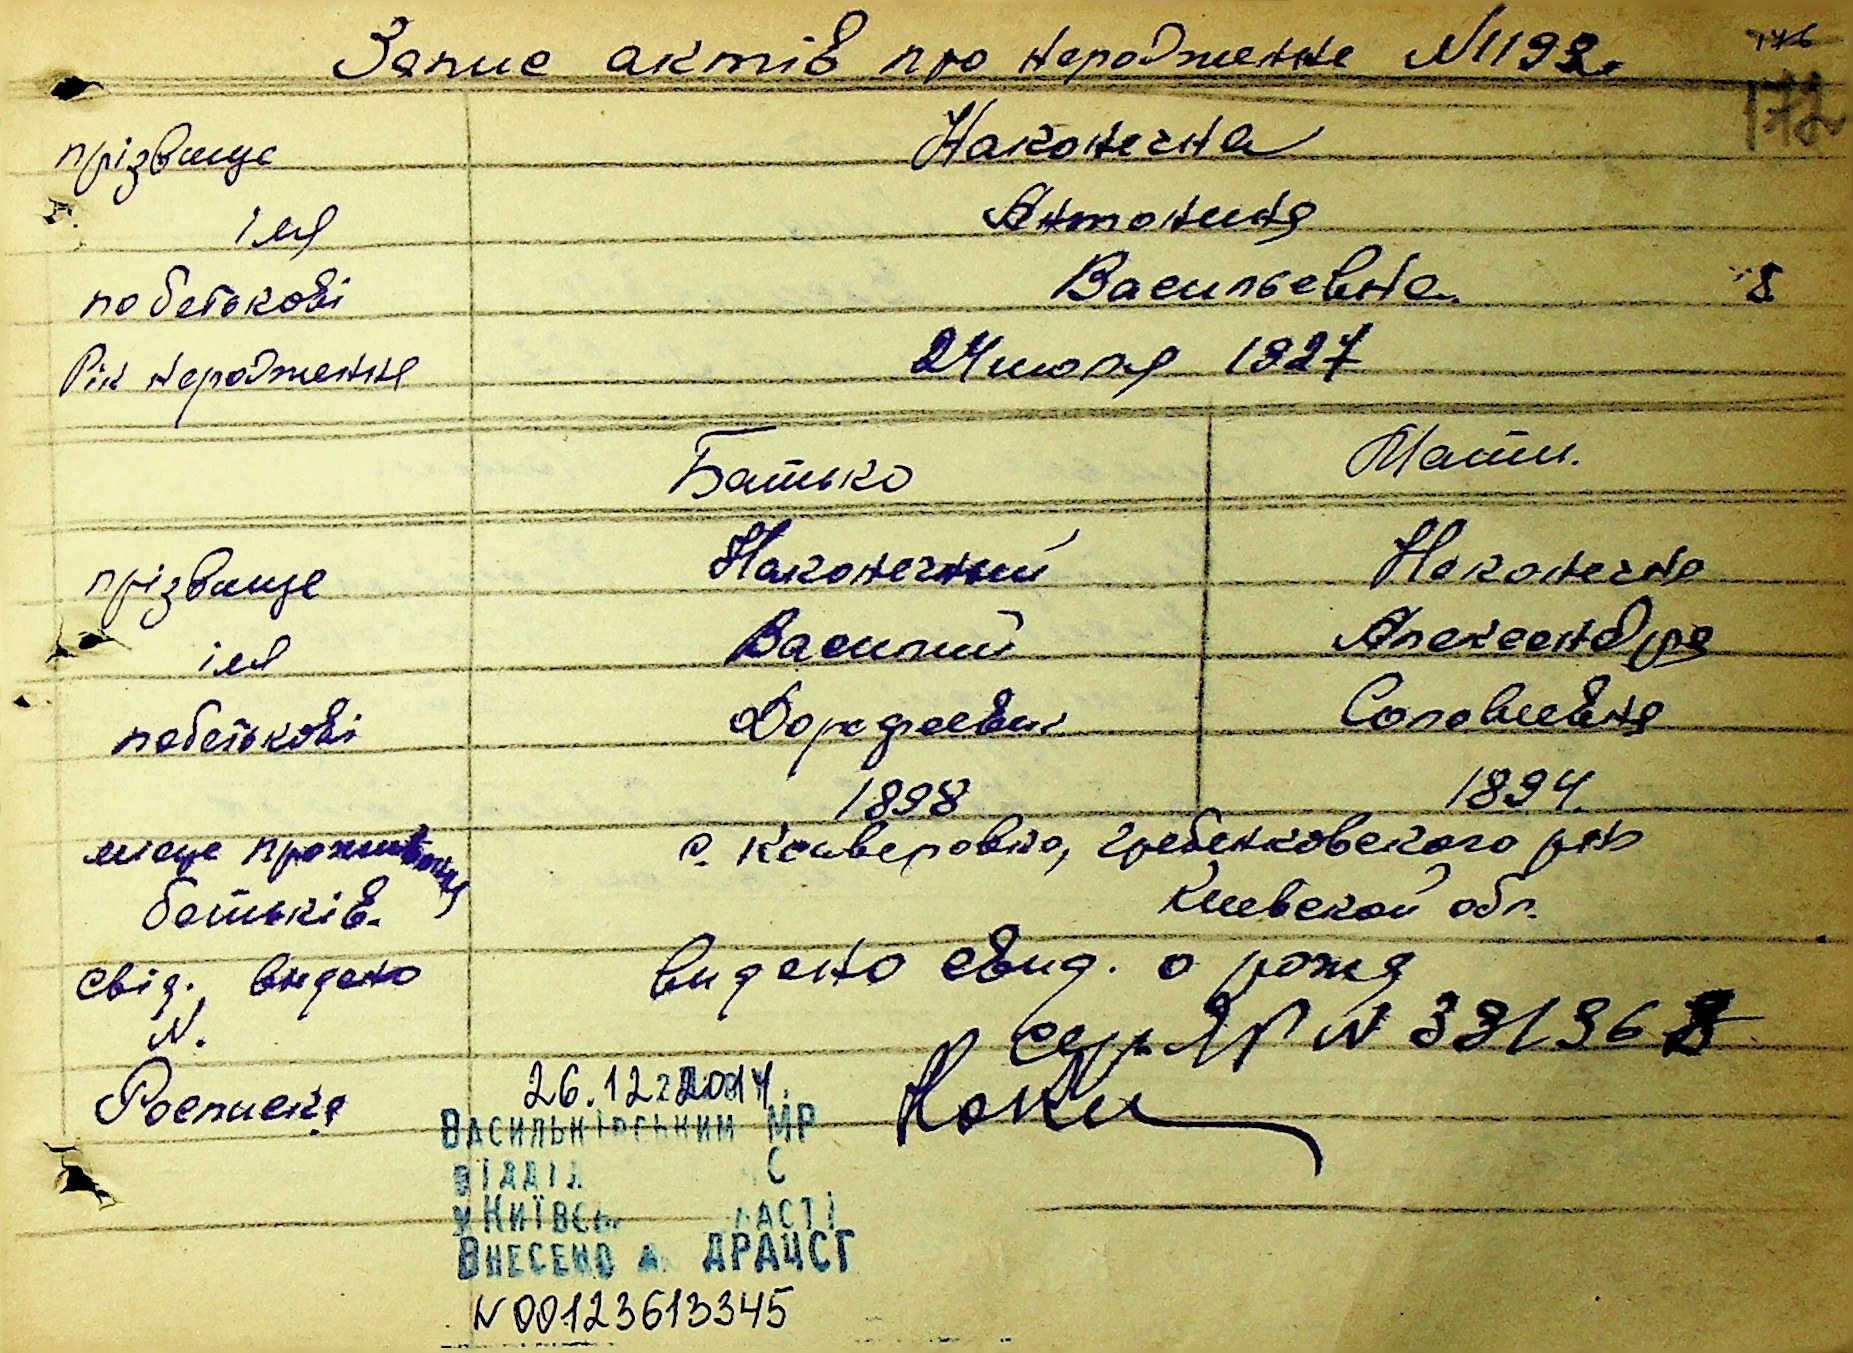 Запис актів про народження №1192.
176
172
прізвище Наконечна
імя Антонина
по батькові Васильевна.
8
Рік народження 24 июля 1927
Батько Мати.
прізвище Наконечный Наконечна
імя Василий Александра
по батькові Дорофеевич
1898 1894.
місце проживання с. Ксаверовка, Гребенковского р-на
батьків. Киевской обл.
свід. видано видано свид. о рожд
N. серЯР N
Росписка
26.12.2014.
Васильківським МР
відділ С
у Київсь ласті
Внесено д ДРАЦСГ
N00123613345